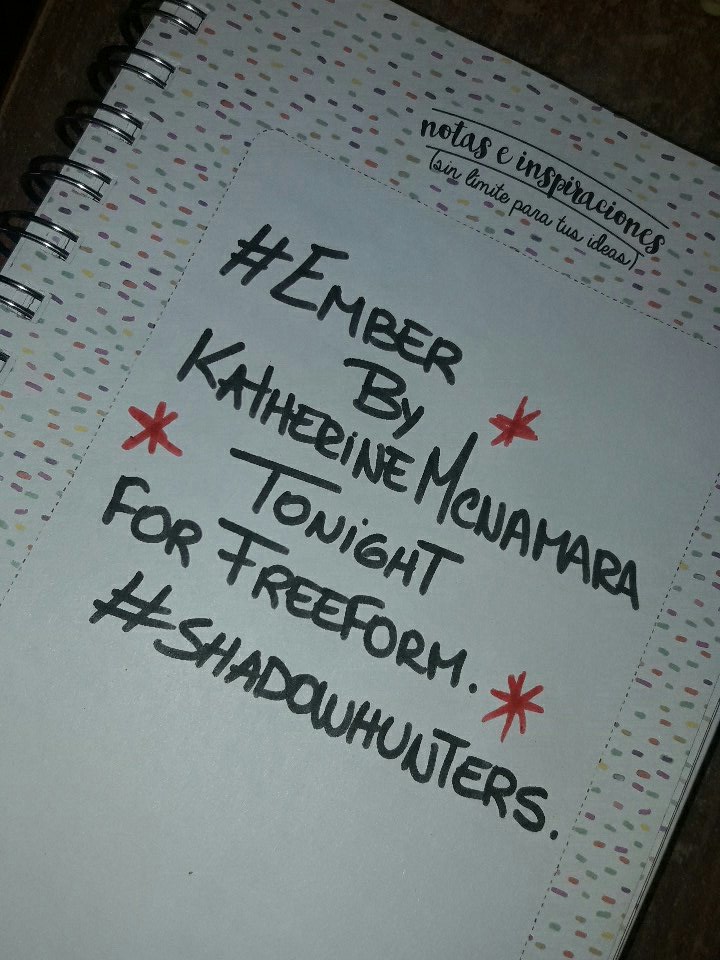 notas e inspiraciones
(sin limite para tus ideas)
#EMBER
BY
KATHERINE MCNAMARA
TONIGHT
FOR FREEFORM.
#SHADOWHUNTERS.